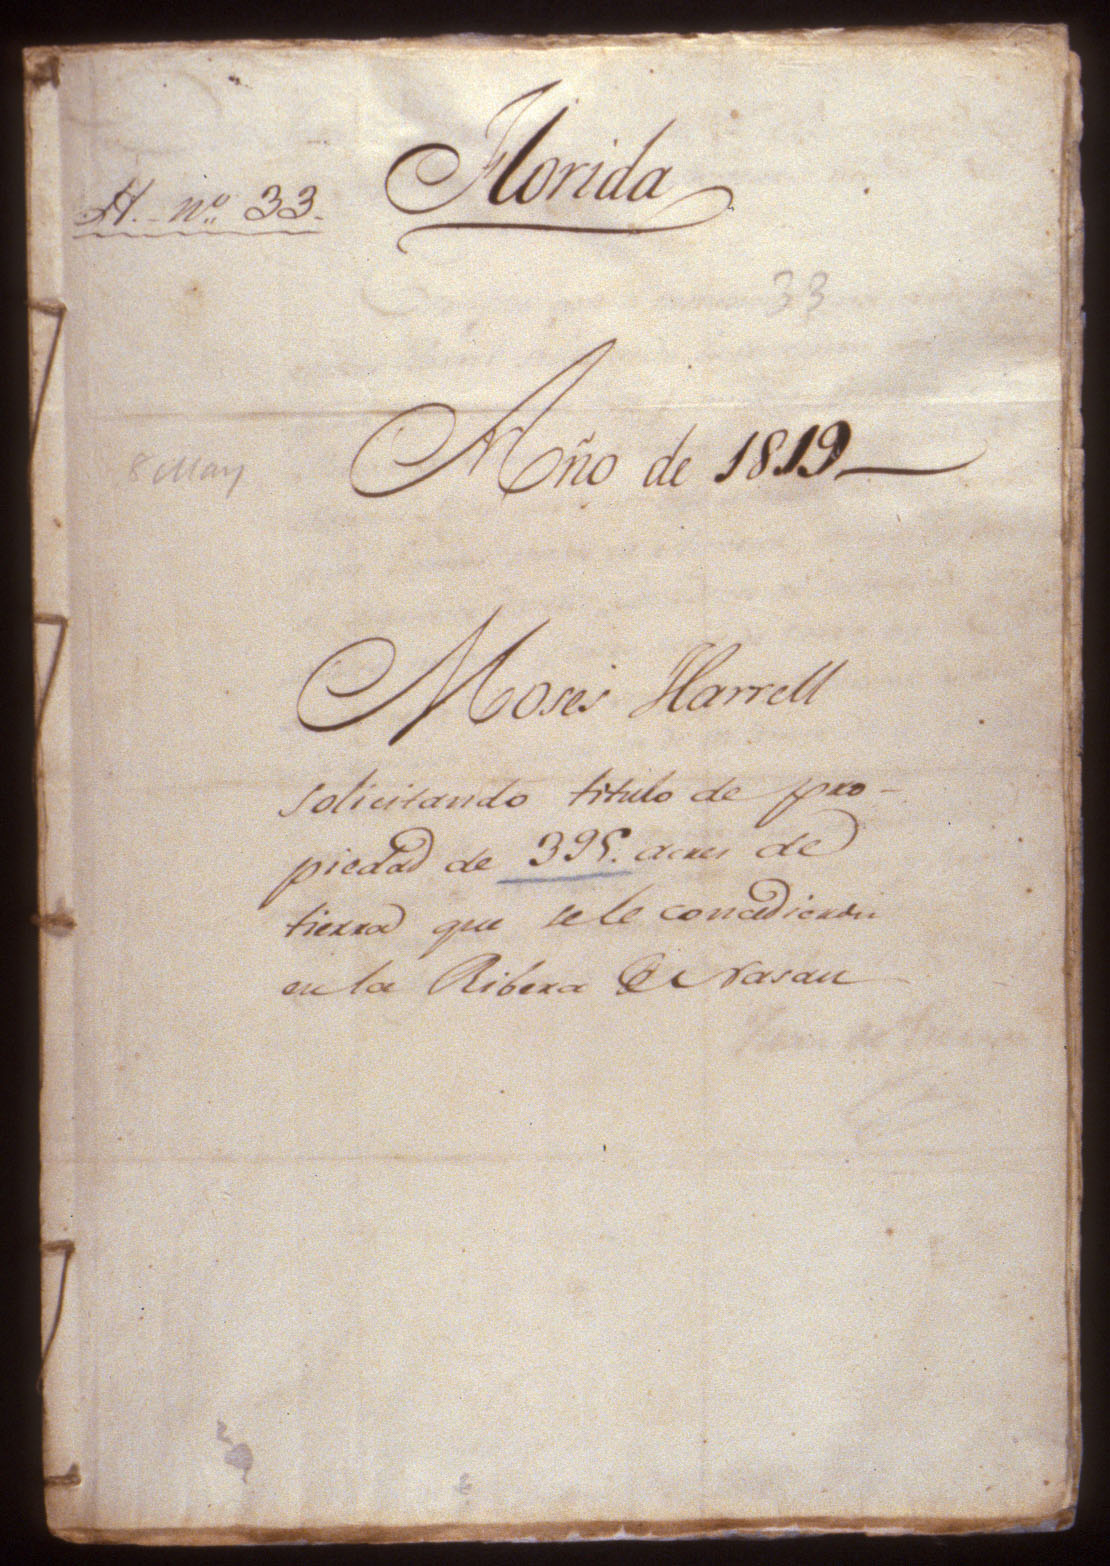 Florida
H. nº 33.
33
Año de 1819
8 May
Moses Harrell
solicitando titulo de pro-
piedad de 395. acres de
tierra que se le concedieron
en la Ribera de Nasau